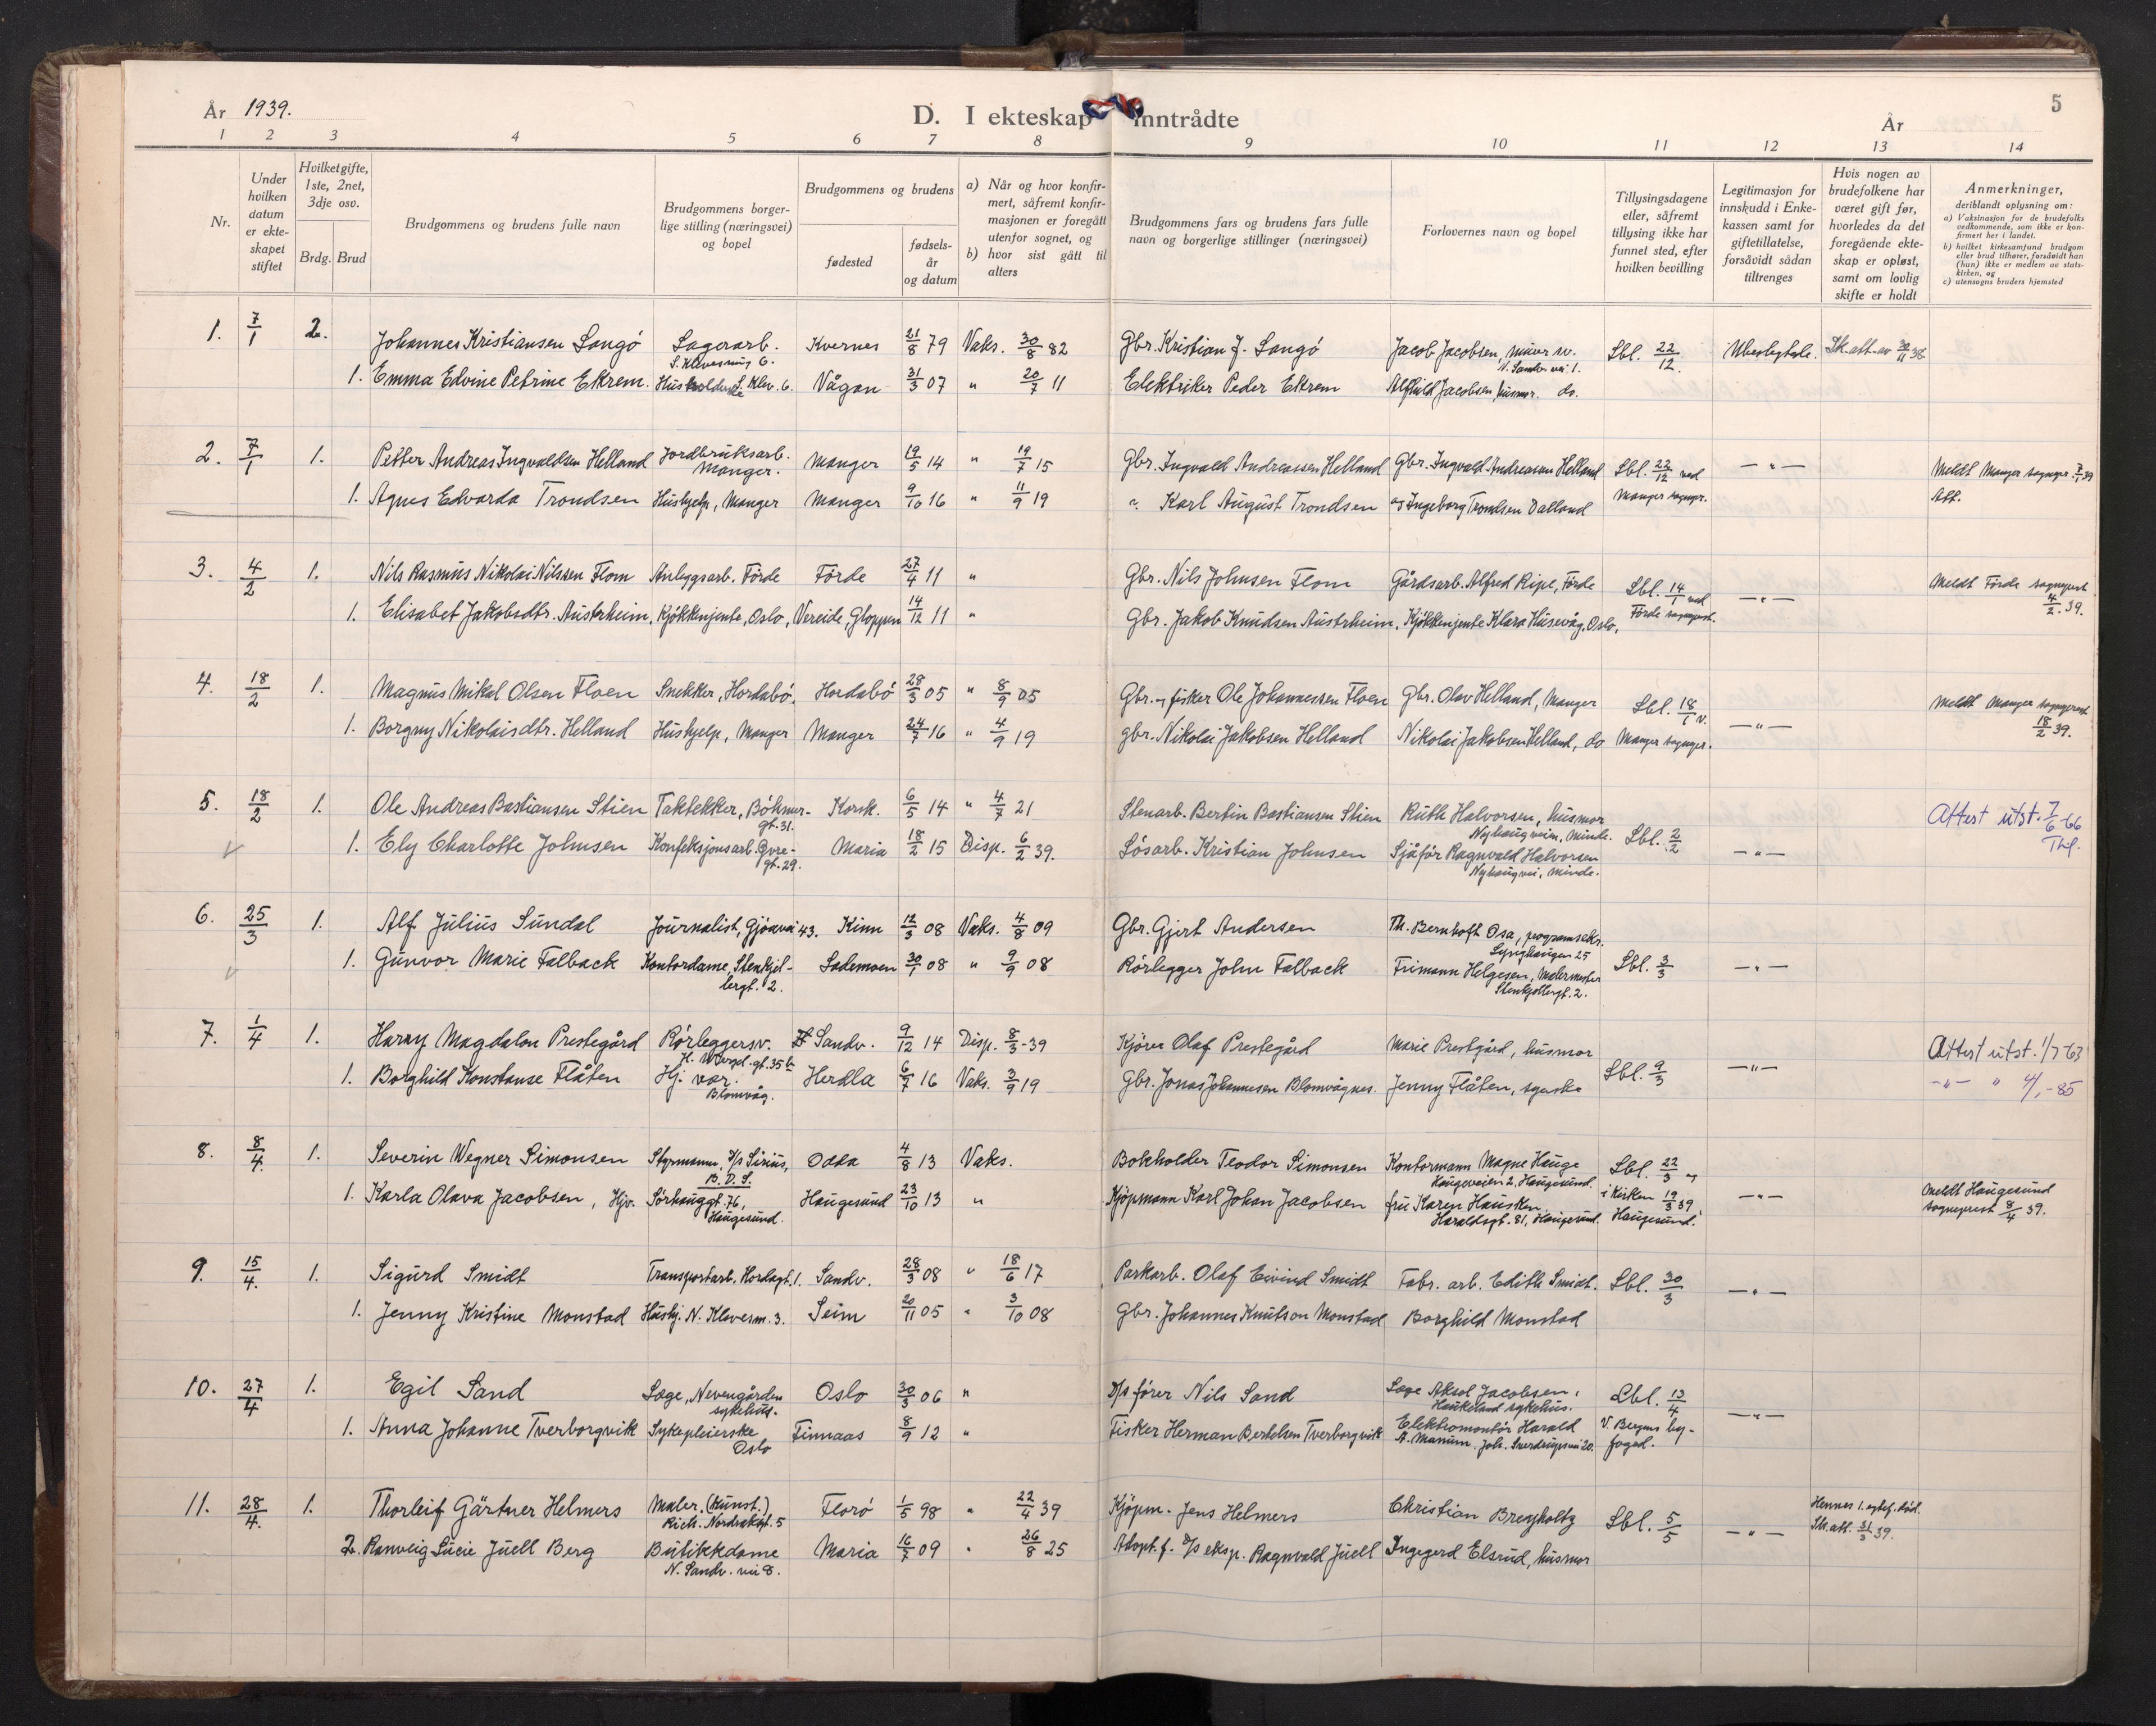 År 1939. D. I ekteskap inntrådte År 5
1 2 3 4 5 6 7 8 9 10 11 12 13 14
Nr.
Under hvilken datum er ekteskapet stiftet
Hvilket gifte, 1ste, 2net, 3dje osv.
Brdg. Brud
Brudgommens og brudens fulle navn
Brudgommens borgerlige stilling (næringsvei) og bopel
Brudgommens og brudens
fødested
fødselsår og datum
a) Når og hvor konfirmert, såfremt konfirmasjonen er foregått utenfor sognet, og
b) hvor sist gått til alters
Brudgommens fars og brudens fars fulle navn og borgerlige stillinger (næringsvei)
Forlovernes navn og bopel
Tillysingsdagene eller, såfremt tillysing ikke har funnet sted, efter hvilken bevilling
Legitimasjon for innskudd i Enkekassen samt for giftetillatelse, forsåvidt sådan tiltrenges
Hvis nogen av brudefolkene har været gift før, hvorledes da det foregående ekteskap er opløst, samt om lovlig skifte er holdt
Anmerkninger, deriblandt oplysning om:
a) Vaksinasjon for de brudefolks vedkommende, som ikke er konfirmert her i landet.
b) hvilket kirkesamfund brudgom eller brud tilhører, forsåvidt han (hun) ikke er medlem av statskirken, og
c) utensogns bruders hjemsted
1. 7/1 2. Johannes Kristiansen Langö Lagerarb. Kvernes 21/8 79 Vaks. 30/8 82 Gbr. Kristian J. Langö Jacob Jacobsen, murer sv. Lbl. 22/12. Ubesbytele. Sk.att. av 30/11 38
S. Klevesmug 6. N. Sandv. vei 1.
1. Emma Edvine Petrine Ekrem. Husholderske S. Klev. 6. Vågan 31/3 07 " 20/7 11 Elektriker Peder Ekrem Alfhild Jacobsen, husmor. do.
2. 7/1 1. Petter Andreas Ingvaldsen Helland Jordbruksarb. Manger. Manger 19/5 14 " 19/7 15 Gbr. Ingvald Andreassen Helland Gbr. Ingvald Andreassen Helland Lbl. 22/12 ved —"— Meldt Manger sogneper. 7/1 39
1. Agnes Edvarda Trondsen Hushjelp, Manger Manger 9/10 16 " 11/9 19 ". Karl August Trondsen og Ingeborg Trondsen Dalland Manger sognepr. Att.
3. 4/2 1. Nils Rasmus Nikolai Nilssen Flom Anleggsarb. Förde Förde 27/4 11 " Gbr. Nils Johnsen Flom Gårdsarb. Alfred Ripe, Förde Lbl. 14/1 ved —"— Meldt Förde sogneprest
1. Elisabet Jakobsdtr. Austrheim, Kjökkenjente, Oslo, Vereide, Gloppen 14/12 11 " Gbr. Jakob Knudsen Austrheim, Kjökkenjente Klara Husevåg, Oslo, Förde sogneprest. 4/2. 39.
4. 18/2 1. Magnus Mikal Olsen Floen Snekker, Hordabö. Hordabö 28/3 05 " 8/9 05 Gbr. og fisker Ole Johannessen Floen Gbr. Olav Helland, Manger Lbl. 18/1 v. Meldt Manger sogneprest
1. Borgny Nikolaisdtr. Helland Hushjelp, Manger Manger 24/7 16 " 4/9 19 gbr. Nikolai Jakobsen Helland Nikolai Jakobsen Helland, do Manger sognepr. —"— 18/2 39.
5. 18/2 1. Ole Andreas Bastiansen Stien Taktekker, Böhmergt. 31. Korsk. 6/5 14 " 4/7 21 Stenarb. Bertin Bastiansen Stien Ruth Halvorsen, husmor Attest utst. 7/6-66
Nyhaugveien, Minde.
1. Ely Charlotte Johnsen Konfeksjonsarb. Övregt. 29. Maria 18/2 15 Disp. 6/2 39. Lösarb. Kristian Johnsen Sjåför Ragnvald Halvorsen Lbl. 2/2 —"—
Nyhaugvei, Minde.
6. 25/3 1. Alf Julius Sundal Journalist, Gjöavei 43. Kinn 12/3 08 Vaks. 4/8 09 Gbr. Gjert Andersen Th. Bernhoft Osa, programsekr.
Lynghaugen 25
1. Gunvor Marie Falback Kontordame, Stenkjellergt. 2. Lademoen 30/1 08 " 9/9 08 Rörlegger John Falback Frimann Helgesen, Malermester Lbl. 3/3 —"—
Stenkjellergt. 2.
7. 1/4 1. Harry Magdalon Prestegård Rörleggersv. Sandv. 9/12 14 Disp. 8/3-39 Kjörer Olaf Prestegård Marie Prestgård, husmor Attest utst. 1/7-63
H. Wergel. gt. 35 b
1. Borghild Konstanse Flåten Hj. vær. Blomvåg. Herdla 6/7 16 Vaks. 3/9 19 Gbr. Jonas Johannesen Blomvågnes. Jenny Flåten, syerske Lbl. 9/3 —"— —"— " 4/1-85
8. 8/4 1. Severin Wegner Simonsen Styrmann, D/s Sirius, Odda 4/8 13 Vaks. Bokholder Teodor Simonsen Kontormann Magne Hauge Lbl. 22/3 og
B. D. S. Haugeveien 2, Haugesund.
1. Karla Olava Jacobsen, Hjv. Sörhauggt. 76, Haugesund. Haugesund 23/10 13 " Kjöpmann Karl Johan Jacobsen fru Karen Hausken i Kirken 19/3 39, —"— Meldt Haugesund
Haraldsgt. 81, Haugesund. Haugesund. sogneprest 8/4 39.
9. 15/4. 1. Sigurd Smidt Transportarb. Hordagt. 1. Sandv. 28/3 08 " 18/6 17 Parkarb. Olaf Eivind Smidt Fabr. arb. Edith Smidt. Lbl. 30/3 —"—
1. Jenny Kristine Monstad Hushj. N. Kleverm. 3. Seim 20/11 05 " 3/10 08 Gbr. Johannes Knutson Monstad Borghild Monstad
10. 27/4 1. Egil Sand Læge, Nevengården sykehus. Oslo 30/3 06 " D/s förer Nils Sand Læge Aksel Jacobsen, Lbl. 13/4
Haukeland sykehus.
1. Anna Johanne Tverborgvik Sykepleierske Oslo Finnaas 8/9 12 " Fisker Herman Bertelsen Tverborgvik Elektromontör Harald v. Bergens by- —"—
A. Manum. Joh. Sverdrupsvei 20. foged.
11. 28/4. 1. Thorleif Gärtner Helmers Maler. (Kunst.) Florö 1/5 98 " 22/4 39 Kjöpm. Jens Helmers Christian Breyholtz Lbl. 5/5 —"— Hennes 1. egtef. död.
Rich. Nordraksgt. 5 Sk. att. 31/3 39.
2. Ranveig Lucie Juell Berg Butikkdame Maria 16/7 09 " 26/8 25 Adopt. f. D/s eksp. Ragnvald Juell Ingegerd Elsrud, husmor
N. Sandv. vei 8.